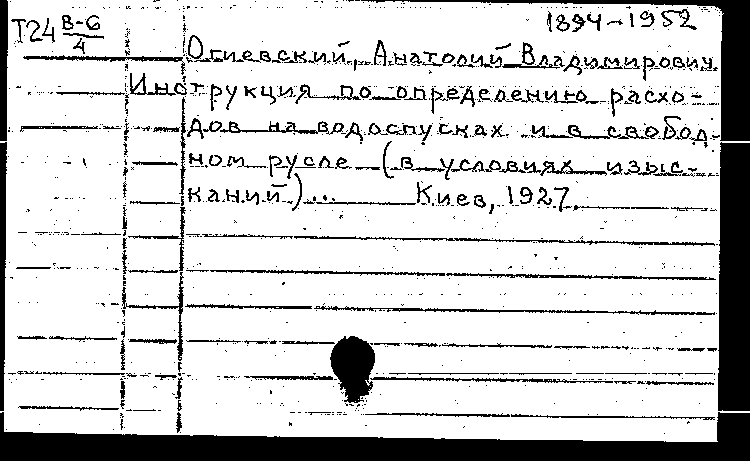 1894-1952
Т24 В-6/4
Огиевский, Анатолий Владимирович
Инструкция по определению расхо-
дов на водоспусках и в свобод-
ном русле (в условиях изыс-
каний)... Киев, 1927.